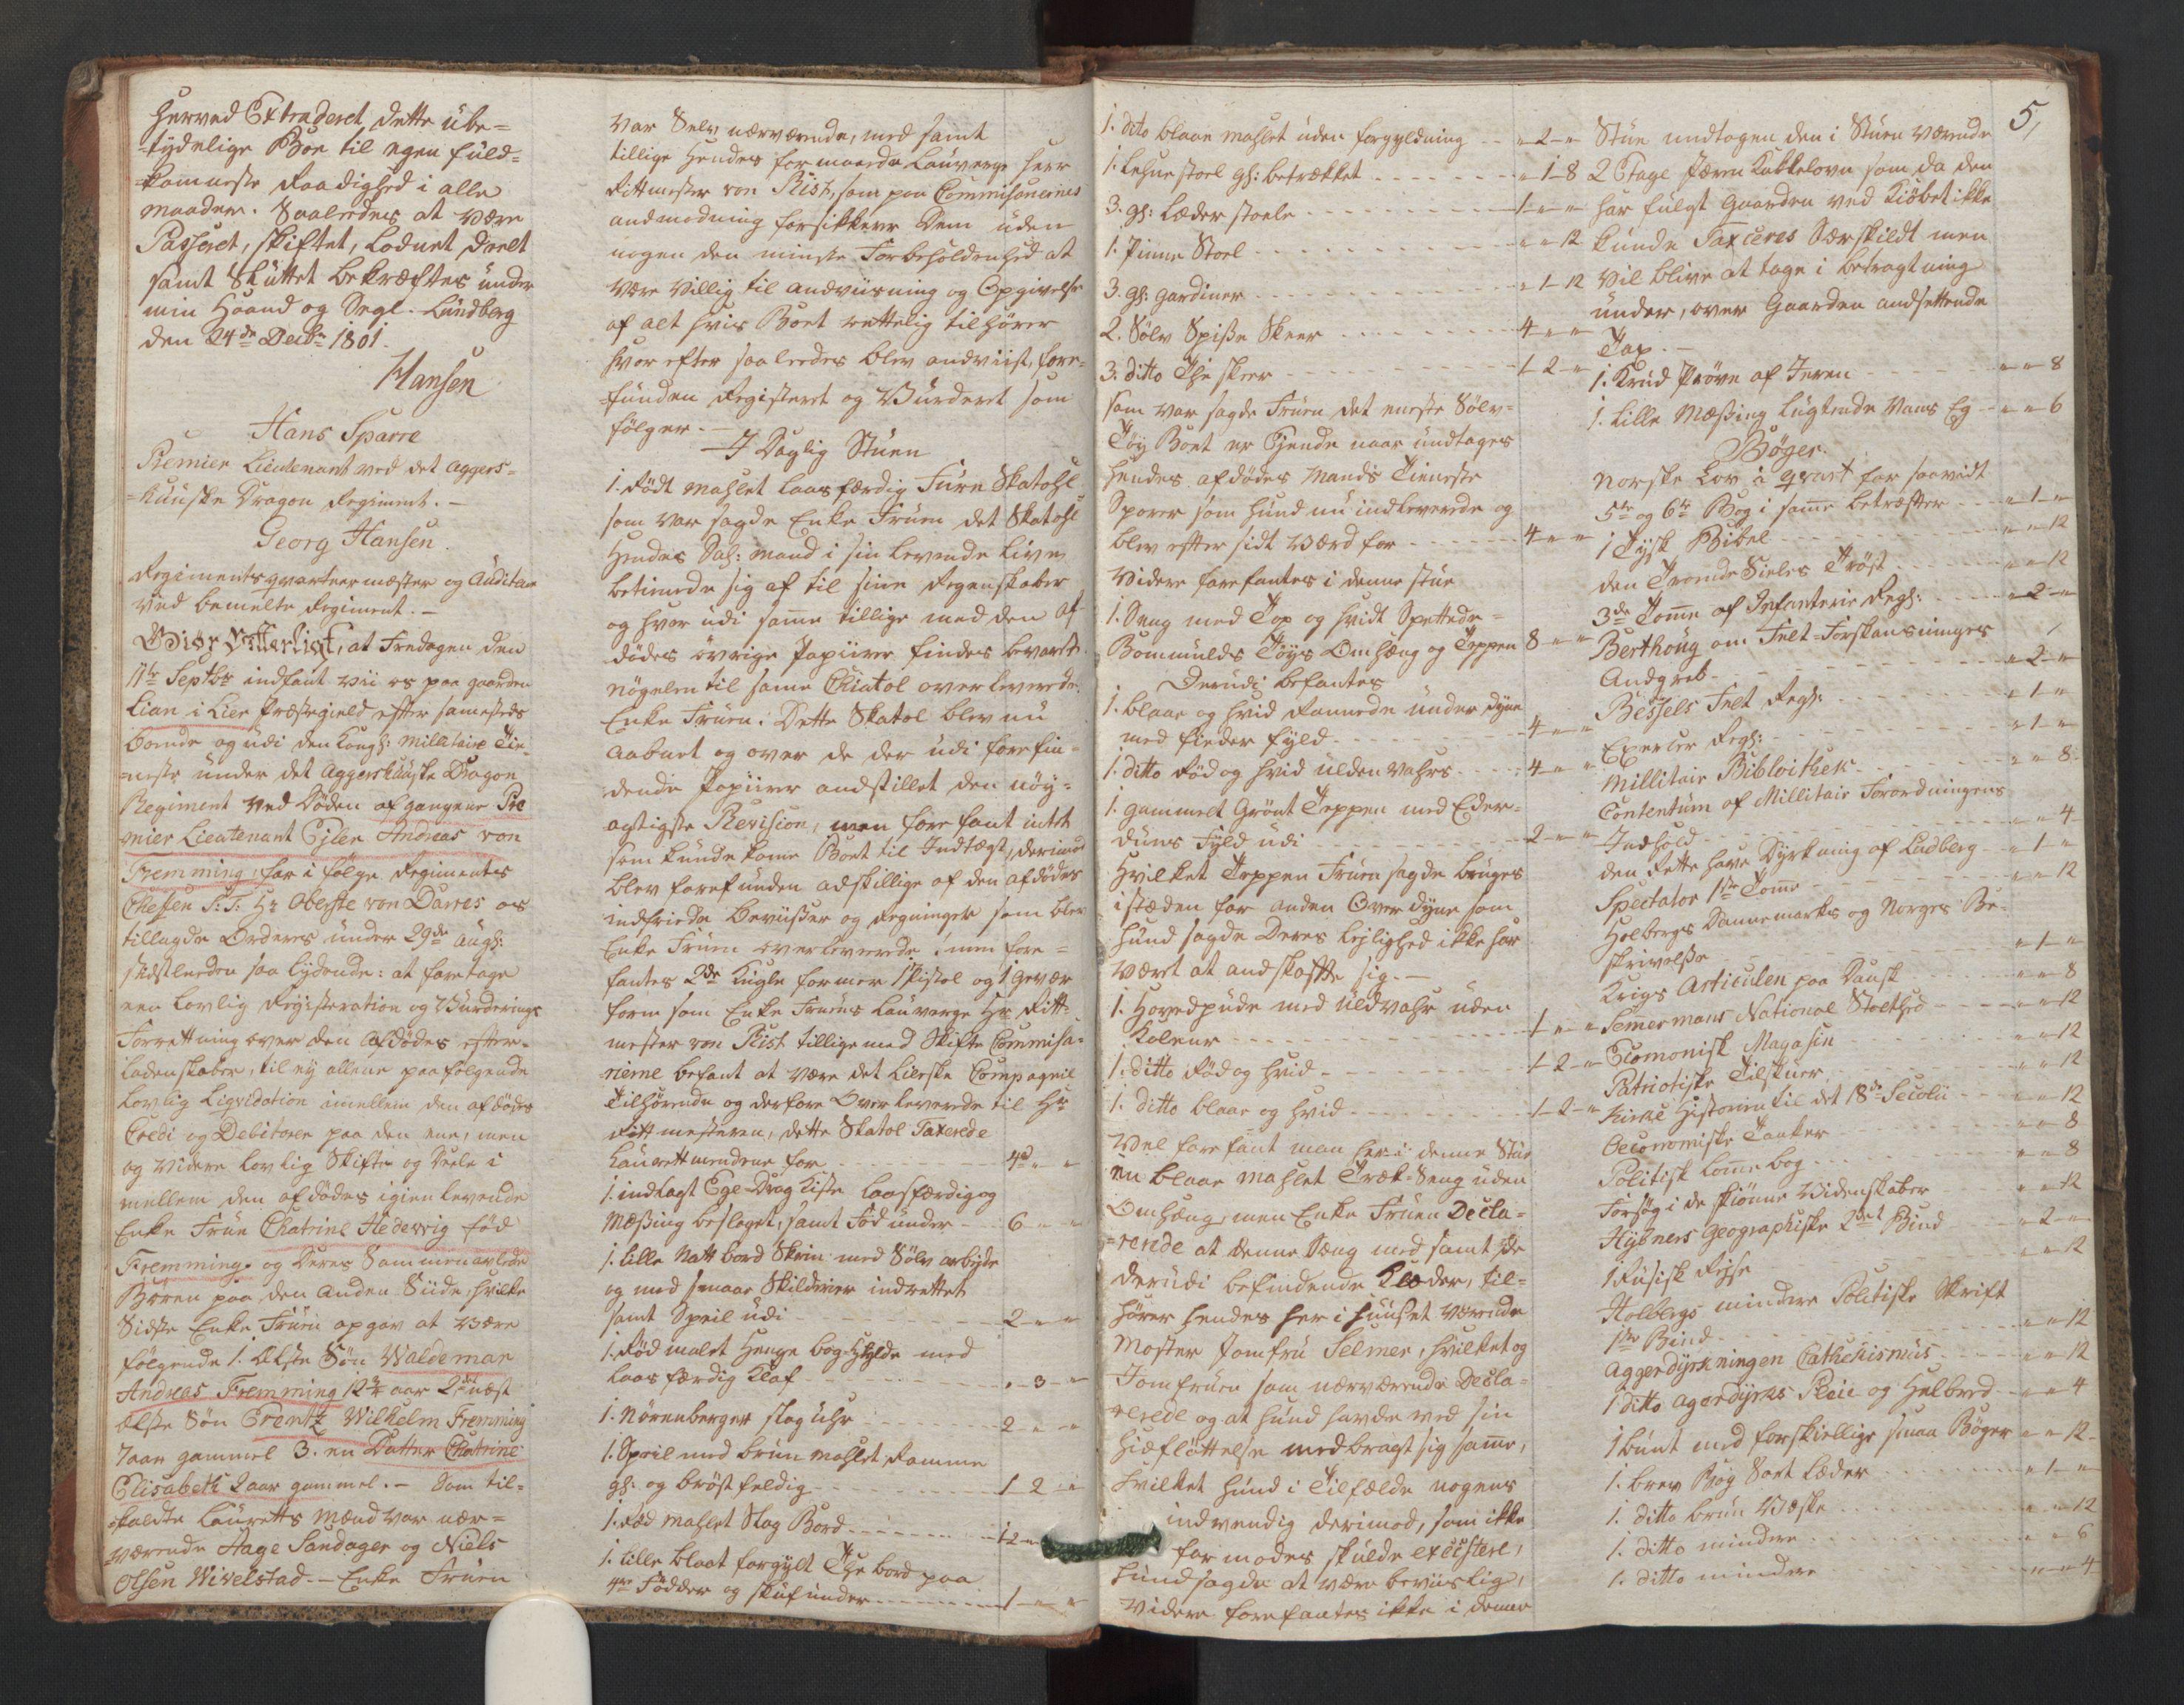 herved Extraderet dette ube=
=tydelige Boe til egen fuld=
=komneste Raadighed i alle
Maader. Saaledes at være
Passeret, skiftet, Lodnet Deelt
samt Sluttet bekræftes under
min Haand og Segl. Lundberg
den 24de Decbr 1801.
Hansen
Hans Sparre
Premier Lieutenant ved det Aggers=
=huuske Dragon Regiment. —
Georg Hansen.
Regimentsqvarteermester og Auditeur
ved bemelte Regiment. —
Giør Vitterligt, at Fredagen den
11te Septbr indfant vii os paa gaarden
Lian i Lier Præstegield efter sammesteds
boende og udi den Kongl: Millitaire Tie=
=neste under det Aggershuuske Dragon
Regiment ved Døden afgangene Pre
mier Lieutenant Ejler Andreas von
Fremming, for i følge Regiments
Cheffen S: T: Hr Oberste von Darres os
tillagde Ordres under 29de Augs:
sidstleeden saa lydende: at foretage
een lovlig Registeration og Vurderings
Forretning over den Afdødes efter=
ladenskaber, til ey allene paafølgende
Lovlig Liqvidation imellem den afdødes
Credi og Debitorer paa den ene, men
og videre lovlig Skifte og Deele i
mellem den afdødes igien levende
Enke Frue Chatrine Hedewig fød
Fremming og Deres Sammenavlede
Børen paa den anden Siide, hvilke
Sidste Enke Fruen opgav at være
følgende 1. Elste Søn Waldemar
Andreas Fremming 12 3/4 aar 2. næst
Elste Søn Frentz Wilhelm Fremming
7 aar gammel 3. en Datter Chatrine
Elisabeth 2 aar gammel. — Som til=
=kaldte Lauretts Mænd var nær=
værende Aage Sandager og Niels
Olsen Wivelstad. — Enke Fruen
var Selv nærværende, med samt
tillige Hendes formaaede Lauverge Herr
Rittmester von Rist, som paa Commisairernes
andmodning forsikkerer Dem uden
nogen den minste Forbeholdenhed at
være Villig til andviisning og Opgivelse
af alt hvis Boet rettelig tilhører
hvor efter saaleedes blev andviist, fore=
=funden Registeret og Vurderet som
følger. —
I Daglig Stuen
1. Rødt mahlet laasfærdig Furre Skatohl
som var sagde Enke Fruen det Skatohl
Hendes Sal: Mand i sin levende Live
betiende sig af til siine Regenskaber
og hvor udi samme tillige med den af
dødes øvrige Papiirer findes bevaret
nøgelen til samme Chatol overleverede
Enke Fruen: Dette Skatol blev nu
aabnet og over de der udi forefin=
dende Papiirer andstillet den nøy=
agtigste Revision, men fore fant intet
som kunde komme Boet til Indtægt, derimod
blev forefunden adskillige af den afdødes
indfriede Beviisser og Regninger som blev
Enke Fruen overleverede. men fore=
fantes 2de Kugle former 1 Pistol og 1 gevær
form som Enke Fruens Lauverge Hr Ritt=
mester von Rist tillige med Skifte Commisa=
rierne befant at være det Lierske Compagnie
Tilhørende og derfore Overleverede til Hr
Rittmesteren, dette Skatol Taxerede
Laurettmendene for 4d " "
1. indlagt Ege-Drag Kiste laasfærdig og
Mæssing beslaget, samt Fød under 6 " "
1. lille Natt bord Skrin med Sølv arbejde
og med smaae Skilderier indrettet
samt Speil udi 2 " "
1. Rød malet Henge bog-Hylde med
Laas færdig Klaf " 3 "
1. Nørenberger slag Uhr 2 " "
1. Speil med brun mahlet Ramme
gl: og brøstfeldig 1 2 "
1. Rød mahlet Slag Bord 1 2 "
1. lille blaat forgylt The bord paa
4re Fødder og skuf under 1 " "
5,
1. dito blaae mahlet uden forgyldning " 2 "
1. Lehnestoel gl: betrækket " 1 8
3. gl: Læder stoele 1 " "
1. Pinne Stoel " " 12
3. gl: Gardiner " 1 12
2. Sølv Spisse Skeer 4 " "
3. ditto The skeer 1 2 "
som var sagde Fruen det eneste Sølv=
Tøy Boet er Ejende naar undtages
Hendes afdødes Mands Tieneste
Sporer som hund nu indleverede og
blev efter sidt Værd for 4 " "
videre forefantes i denne Stue
1. Seng med Top og hvidt Spettede=
Bommulds Tøys Omhæng og Teppen 8 " "
Derudi befantes
1. blaae og hvid Rannede under dyne
med fieder fyld 4 " "
1. ditto Rød og hvid ulden vahrs 4 " "
1. gammelt Grønt Teppen med Eder=
duns Fyld udi 2 " "
Hvilket Teppen Fruen sagde bruges
istæden for anden Over dyne som
hund sagde Deres Lejlighed ikke har
været at andskaffe sig. —
1. Hovedpude med Uldvahr uden
Koleur 1 " "
1. ditto Rød og hvid 1 2 "
1. ditto blaae og hvid 1 2 "
vel forefant man her i denne Stue
en blaae mahlet Træk-Seng uden
Omhæng, men Enke Fruen Decla=
=rerede at denne Seng med samt de
derudi befindende Klæder, til=
hører hendes her i huuset værende
Moster Jomfru Selmer, hvilket og
Jomfruen som nærværende Decla=
rerede og at hund havde ved sin
hidfløttelse medbragt sig samme,
hvilket hund i Tilfælde nogens
indvendig derimod, som ikke
formodes skulde excistere,
hund sagde at være beviislig,
videre forefantes ikke i denne
Stue undtagen den i Stuen værende
2 Etage Jæren Kakkelovn som da den
har fulgt Gaarden ved Kiøbet ikke
kunde Taxceres Særskildt men
vil blive at tage i betragtning
under, over Gaarden andsettende
Tax. —
1. Krud Prøve af Jeren " " 8
1. Lille Mæssing Lugtende Vans Eg " " 6
Bøger.
Norske Lov i qvart for saavidt
5te og 6te Bog i samme betræffer " 1 "
1 Tysk Bibel " " 12
den Troende Sieles Trøst " " 12
3de Tomme af Infanterie Regl: " 2 "
Berthoug om Felt-Forskansninger
Andgreb " 2 "
Bessels Felt Regl: " 1 "
Exercer Regl: " 1 "
Millitair Bibloithek " " 8
Contentum af Millitair Forordningens
Indhold " " 4
den Rette Have Dyrkning af Ladberg " 1 "
Spectator 1ste Tomme " " 12
Holbergs Dannemarks og Norges Be=
skrivelse " 1 "
Krigs Articulen paa Dansk " " 8
Semmermans National Stolthed " " 12
Ecomonisk Magasin " " 12
Patriotiske Tilskuer " " 12
Kirke Historien til det 18de Secolii " " 12
Oeconomiske Tanker " " 8
Politisk Lommebog " " 8
Forsøg i de skiønne Videnskaber " " 12
Hybners Geographiske 2det Bind " 2 "
1 Rusisk Rejse " " 12
Holbergs mindre Politiske Skrift
1te Bind " " 12
Aggerdyrkningen Cathekismus " " 12
1 ditto Agerdyrks Pleie og Helbred " " 4
1 bunt med forskiellige smaa Bøger " " 12
1. brev Bog Sort Læder " 1 "
1. ditto brun Væske " " 12
1. ditto mindre " " 6
1. ditto mindre " " 4